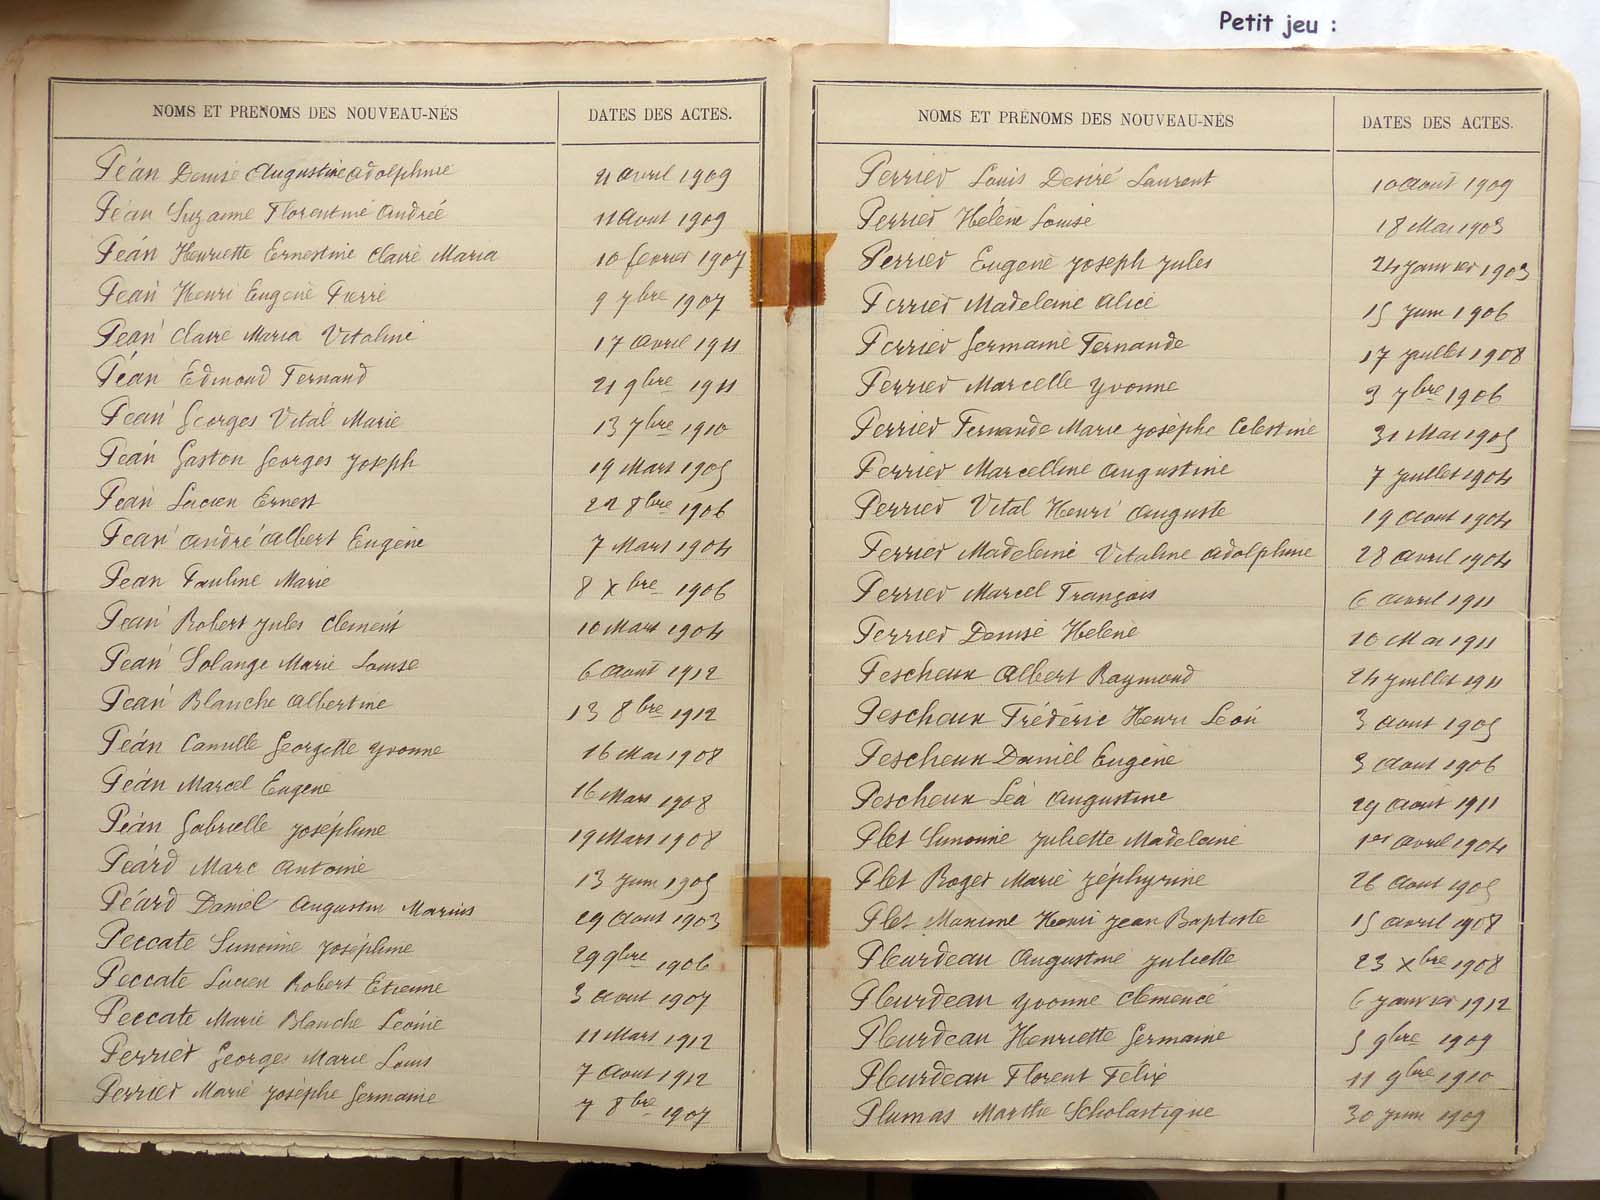 Petit jeu :
NOMS ET PRENOMS DES NOUVEAU-NÉS
DATES DES ACTES.
Péan Denise Augustine Adolphine 21 avril 1909
Péan Suzanne Florentine Andrée 11 Aout 1909
Péan Henriette Ernestine Claire Maria 10 février 1907
Péan Henri Eugene Pierre 9 7bre 1907
Péan Claire Maria Vitaline 17 avril 1911
Péan Edmond Fernand 21 9bre 1911
Péan Georges Vital Marie 13 7bre 1910
Péan Gaston Georges Joseph 19 Mars 1905
Péan Lucien Ernest 22 8bre 1906
Péan André Albert Eugène 7 Mars 1904
Péan Pauline Marie 8 Xbre 1906
Péan Robert Jules Clement 10 Mars 1904
Péan Solange Marie Louise 6 Août 1912
Péan Blanche Albertine 13 8bre 1912
Péan Camille Georgette Yvonne 16 Mai 1908
Péan Marcel Eugene 16 Mars 1908
Péan Gabrielle Joséphine 19 Mars 1908
Péard Marc Antoine 13 Juin 1905
Péard Daniel Augustin Marius 29 Aout 1903
Peccate Simonne Joséphine 29 9bre 1906
Peccate Lucien Robert Etienne 3 aout 1907
Peccate Marie Blanche Léonie 11 Mars 1912
Perrier Georges Marie Louis 7 Aout 1912
Perrier Marie Josèphe Germaine 7 8bre 1907
NOMS ET PRÉNOMS DES NOUVEAU-NÉS
DATES DES ACTES.
Perrier Louis Desiré Laurent 10 Août 1909
Perrier Hélène Louise 18 Mai 1903
Perrier Eugene Joseph Jules 24 Janvier 1903
Perrier Madeleine Alice 15 Juin 1906
Perrier Germaine Fernande 17 Juillet 1908
Perrier Marcelle Yvonne 3 7bre 1906
Perrier Fernande Marie Josèphe Celestine 31 Mai 1905
Perrier Marcelline Augustine 7 Juillet 1904
Perrier Vital Henri Auguste 19 Aout 1904
Perrier Madeleine Vitaline Adolphine 28 avril 1904
Perrier Marcel François 6 avril 1911
Perrier Denise Helene 20 Mai 1911
Pescheux Albert Raymond 24 Juillet 1911
Pescheux Frédéric Henri Léon 3 aout 1905
Pescheux Daniel Eugène 3 Aout 1906
Pescheux Léa Augustine 29 Août 1911
Plet Simonne Juliette Madeleine 1er avril 1904
Plet Roger Marie Zéphyrine 26 Aout 1905
Plet Maxime Henri Jean Baptiste 15 avril 1908
Pleurdeau Augustine Juliette 23 Xbre 1908
Pleurdeau Yvonne Clemence 6 Janvier 1912
Pleurdeau Henriette Germaine 5 9bre 1909
Pleurdeau Florent Félix 11 9bre 1910
Plumas Marthe Scholastique 30 Juin 1909